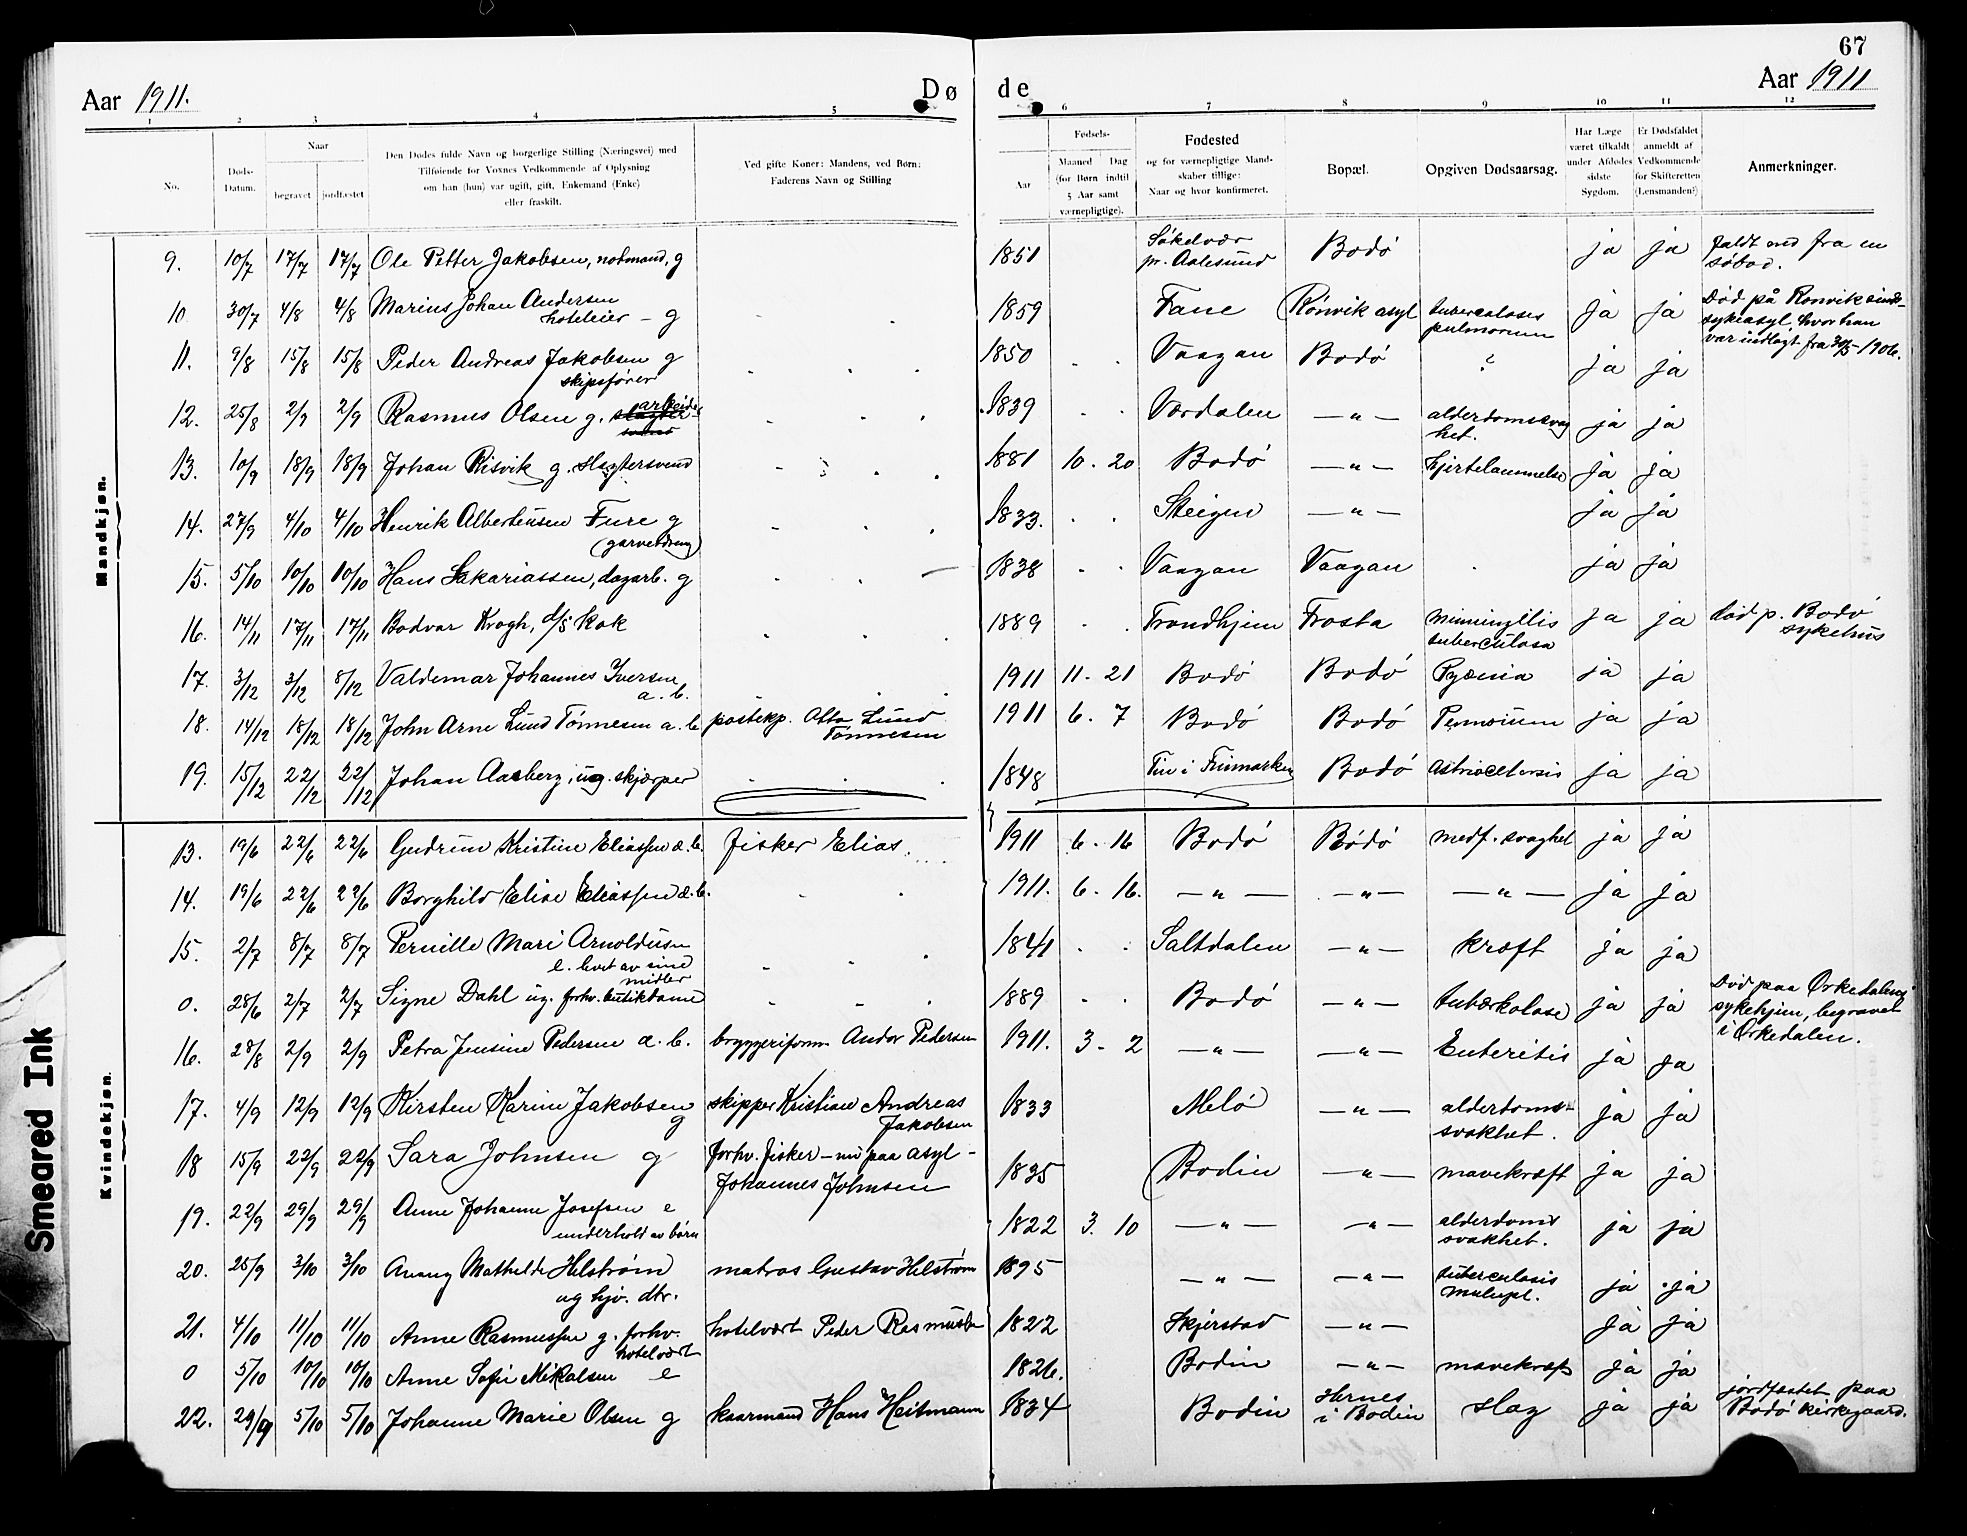 67
Aar 1911. Døde Aar 1911
1 2 3 4 5 6 7 8 9 10 11 12
No.
Døds-Datum.
Naar
begravet jordfæstet
Den Dødes fulde Navn og borgerlige Stilling (Næringsvei) med
Tilføiende for Voxnes Vedkommende af Oplysning
om han (hun) var ugift, gift, Enkemand (Enke)
eller fraskilt.
Ved gifte Koner: Mandens, ved Børn:
Faderens Navn og Stilling
Fødsels-
Aar
Maaned Dag
(for Børn indtil
5 Aar samt
værnepligtige).
Fødested
og for værnepligtige Mand-
skaber tillige:
Naar og hvor konfirmeret.
Bopæl.
Opgiven Dødsaarsag.
Har Læge
været tilkaldt
under Afdødes
sidste
Sygdom.
Er Dødsfaldet
anmeldt af
Vedkommende
for Skifteretten
(Lensmanden?)
Anmerkninger.
Mandkjøn.
9. 10/7 17/7 17/7 Ole Petter Jakobsen, notmand, g 1851 pr. Aalesund Bodó ja ja faldt ned fra en
søbod.
10 30/7 4/8 4/8 Marius Johan Andersen
hoteleier - g 1859 Fane Rónvik asyl tuberculosis
pulmonum ja ja Død på Rónvik sinds-
sykeasyl, hvor han
var indlagt fra 30/5-1906.
11. 9/8 15/8 15/8 Peder Andreas Jakobsen g
skipsfører 1850 Vaagan Bodó ? ja ja
12. 25/8 2/9 2/9 Rasmus Olsen g. arbeider 1839 Værdalen -"- alderdomssvag
het. ja ja
13. 10/9 18/9 18/9 Johan Risvik g. Slagtersvend 1881 10. 20 Bodó -"- hjertelammelse ja ja
14. 27/9 4/10 4/10 Henrik Albertensen Fure g
(garvedreng) 1833. Steigen -"- ja ja
15. 5/10 10/10 10/10 Hans Sakariassen, dagarb. g 1838 Vaagan Vaagan ja ja
16. 14/11 17/11 17/11 Bodvar Krogh, d/s kok 1889 Trondhjem Frosta
tuberculosa ja ja død p. Bodó
sykehus
17. 3/12 3/12 8/12 Valdemar Johannes Iversen
a. b. 1911 11. 21 Bodó Bodó Pyæmia ja ja
18. 14/12 18/12 18/12 John Arne Lund Tónnesen a. b postekp. Otto Lund
Tónnesen 1911 6. 7 Bodó Bodó ja ja
19. 15/12 22/12 22/12 Johan Aasberg, ug. skjærper 1848 i Finmarken Bodó ja ja
Kvindekjøn.
13. 19/6 22/6 22/6 Gudrun Kristine Eliassen æ. b. fisker Elias 1911 6. 16 Bodó Bódó medf. svaghet ja ja
14. 19/6 22/6 22/6 Borghild Elise Eliassen æ. b. 1911. 6. 16. -"- -"- -"- ja ja
15. 2/7 8/7 8/7 Pernille Mari Arnoldusen
e. levet av sine
midler 1841 Saltdalen -"- kræft ja ja
0. 28/6 2/7 2/7 Signe Dahl ug. forhv. butikdame 1889 Bodó -"- tuberkolose ja ja Død paa Orkedalens
sykehjem, begravet
i Orkedalen.
16. 28/8 2/9 2/9 Petra Jensine Pedersen æ. b. bryggeriform. Andor Pedersen 1911. 3 - 2 -"- -"- Enteritis ja ja
17. 4/9 12/9 12/9 Kirsten Karine Jakobsen
g skipper Kristian Andreas
Jakobsen 1833 Meló -"- alderdoms-
svakhet. ja ja
18 15/9 22/9 22/9 Sara Johnsen g forhv. fisker - nu paa asyl -
Johannes Johnsen 1835 Bodin -"- mavekræft ja ja
19. 22/9 29/9 29/9 Anne Johanne Josefsen e
underhold av børn 1822 3. 10 -"- -"- alderdoms
svakhet. ja ja
20. 25/9 3/10 3/10 Mathilde Helstrøm
ug hjv. dtr. matros Gustav Helstrøm 1895 -"- -"- tuberculosis
ja ja
21. 4/10 11/10 11/10 Anne Rasmussen g. forhv.
hotelvært hotelvært Peder Rasmussen 1822 Skjerstad -"- ja ja
0 5/10 10/10 10/10 Anne Sofie Mikalsen e 1826. Bodin -"- mavekræft ja ja
22. 29/9 5/10 5/10 Johanne Marie Olsen g kaarmand Hans Heitmann 1834 Bodin Hernes
i Bodin slag ja ja jordfæstet paa
Bodó kirkegaard.
Smeared Ink